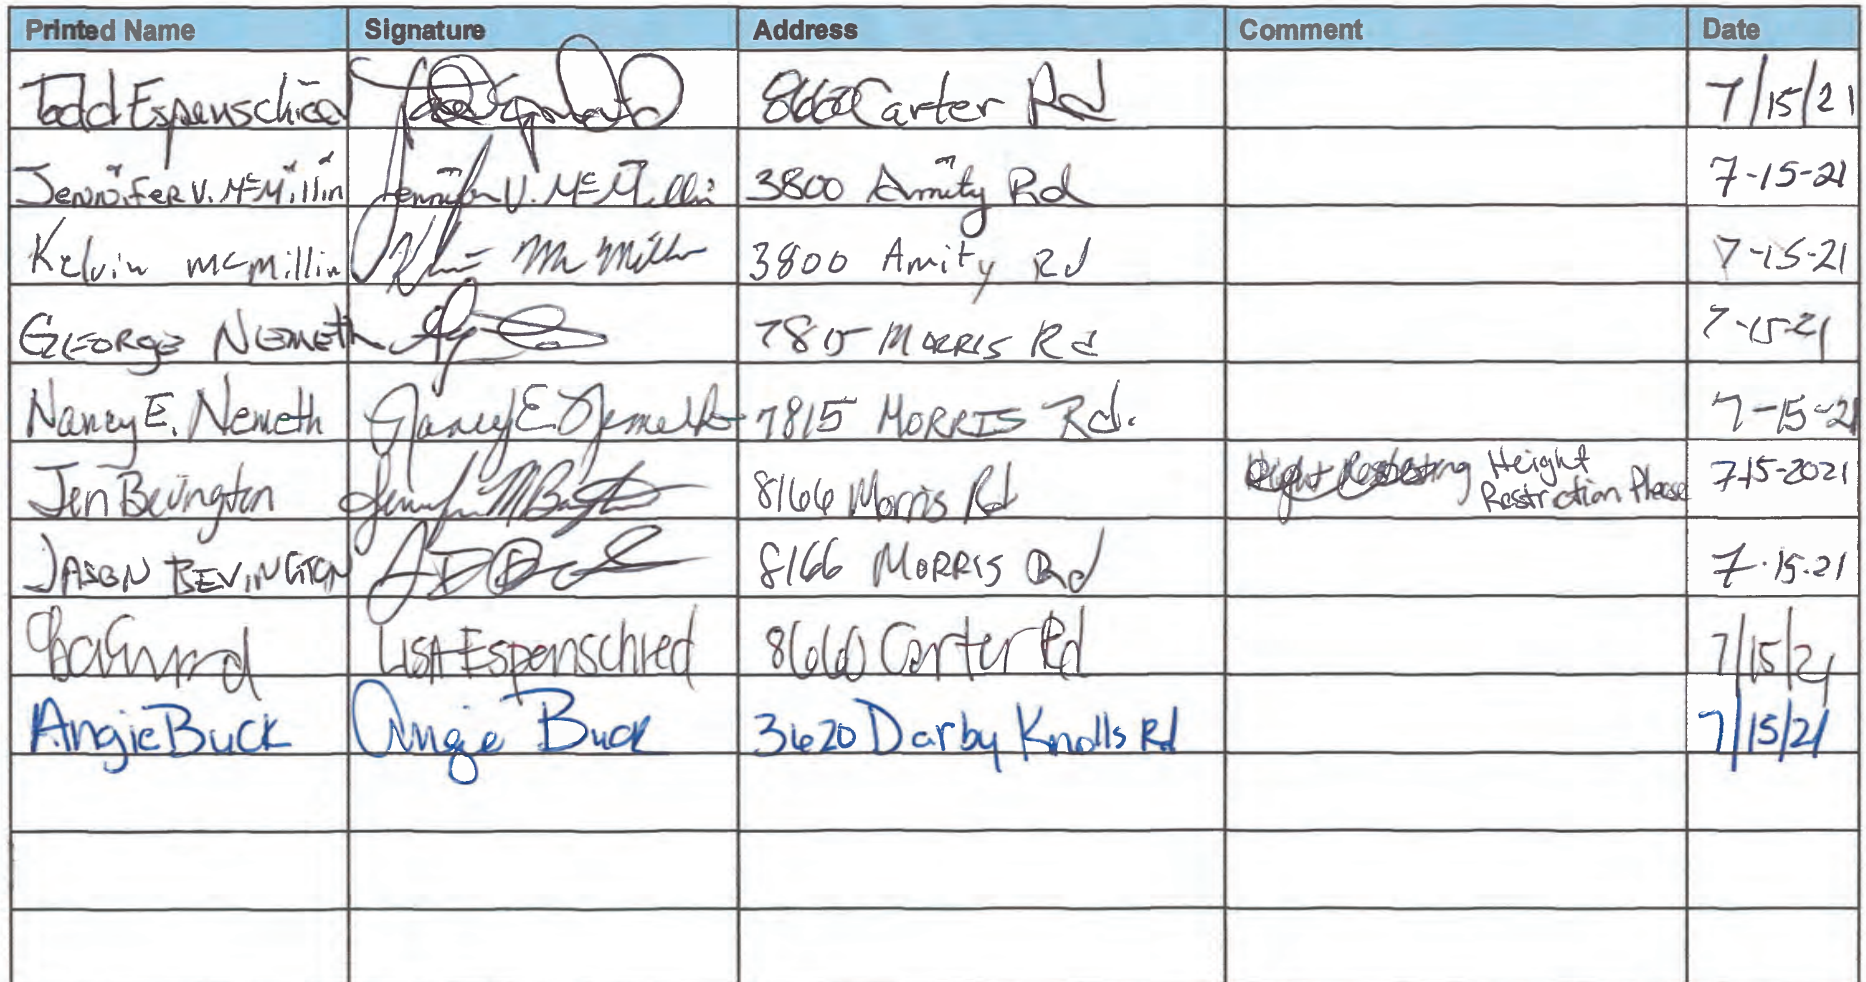 Printed Name Signature Address Comment Date
Todd Espenschied 8660 Carter Rd 7/15/21
Jennifer V. McMillin Jennifer V. McMillin 3800 Amity Rd 7-15-21
Kelvin McMillin 3800 Amity Rd 7-15-21
George Nemeth 7815 Morris Rd 7-15-21
Nancy E. Nemeth Nancy E Nemeth 7815 MORRIS Rd. 7-15-21
Jen Bevington 8166 Morris Rd Height 7-15-2021
Restriction Please
JASON BEVINGTON 8166 MORRIS Rd 7-15-21
LISA Espenschied 8660 Carter Rd 7/15/21
Angie Buck Angie Buck 3620 Darby Knolls Rd 7/15/21